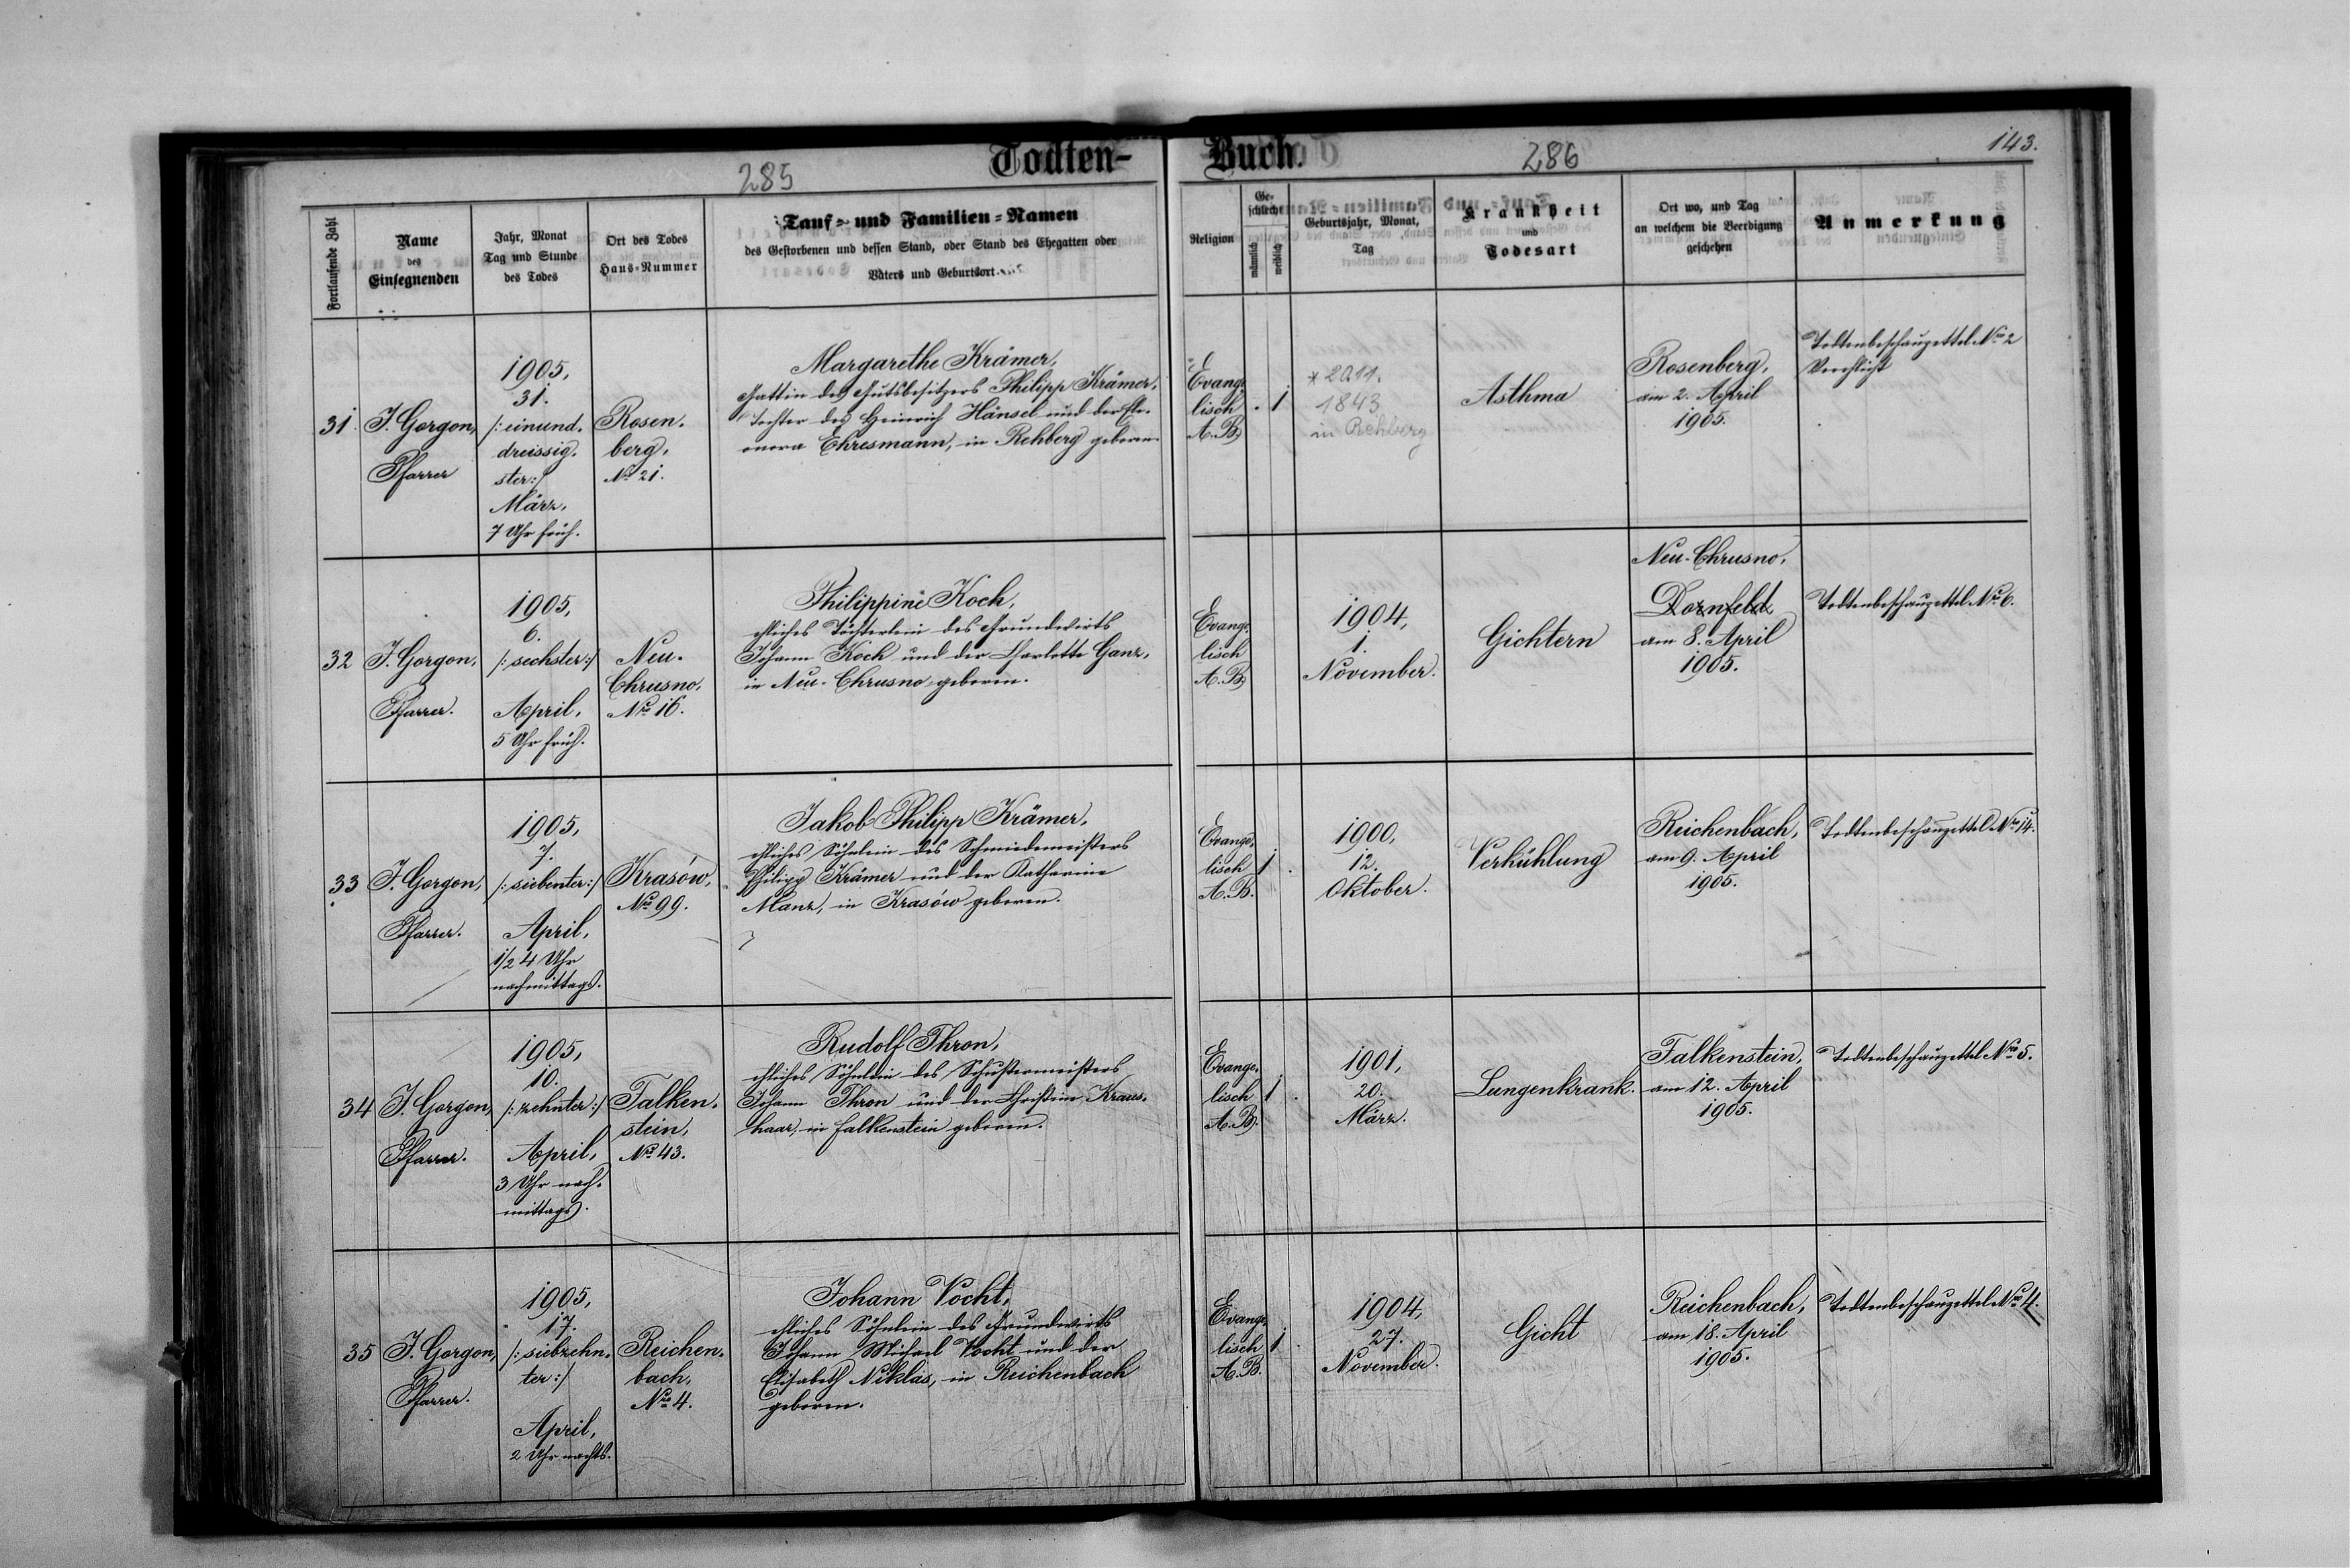 Todten-
Buch.
285
286
143.
Fortlaufende Zahl
Name
des
Einsegnenden
Jahr, Monat
Tag und Stunde
des Todes
Ort des Todes
Haus-Nummer
Tauf- und Familien-Namen
des Gestorbenen und dessen Stand, oder Stand des Ehegatten oder
Vaters und Geburtsort
Religion
Ge-
schlecht
männlich
weiblich
Geburtsjahr, Monat,
Tag
Krankheit
und
Todesart
Ort wo, und Tag
an welchem die Beerdigung
geschehen
Anmerkung
31.
J. Gorgon,
Pfarrer
1905,
31.
/: einund-
dreissig-
ster :/
März,
7 Uhr früh.
Rosen-
berg,
No 21.
Margarethe Krämer,
Gattin des Gutsbesitzers Philipp Krämer,
Tochter des Heinrich Hänsel und der Ele-
onora Ehresmann, in Rehberg geboren.
Evange-
lisch
A. B.
1
* 20.11.
1843
in Rehberg
Asthma
Rosenberg,
am 2. April
1905.
Todtenbeschauzettel No 2
32
J. Gorgon,
Pfarrer.
1905,
6.
/: sechster :/
April,
5 Uhr früh.
Neu-
Chrusno,
No 16.
Philippine Koch,
eheliches Töchterlein des Grundwirts
Johann Koch und der Charlotte Ganz,
in Neu-Chrusno geboren.
Evange-
lisch
A. B.
1904,
1.
November.
Gichtern
Neu-Chrusno,
Dornfeld
am 8. April
1905.
Todtenbeschauzettel No 6.
33
J. Gorgon,
Pfarrer.
1905,
7.
/: siebenter :/
April,
1/2 4 Uhr
nachmittags.
Krasów,
No 99.
Jakob Philipp Krämer,
eheliches Söhnlein des Schmiedemeisters
Philipp Krämer und der Katharine
Manz, in Krasów geboren.
Evange-
lisch
A. B.
1
1900,
12.
Oktober.
Verkühlung
Reichenbach,
am 9. April
1905.
Todtenbeschauzettel No 14.
34
J. Gorgon,
Pfarrer.
1905,
10.
/: zehnter :/
April,
3 Uhr nach-
mittags.
Falken-
stein,
No 43.
Rudolf Thron,
eheliches Söhnlein des Schustermeisters
Johann Thron und der Christine Kraus-
haar, in Falkenstein geboren.
Evange-
lisch
A. B.
1
1901,
20.
März.
Lungenkrank.
Falkenstein,
am 12. April
1905.
Todtenbeschauzettel No 5.
35
J. Gorgon,
Pfarrer.
1905,
17.
/: siebzehn-
ter :/
April,
2 Uhr nachts.
Reichen-
bach,
No 4.
Johann Vocht,
eheliches Söhnlein des Grundwirts
Johann Michael Vocht und der
Elisabeth Niklas, in Reichenbach
geboren.
Evange-
lisch
A. B.
1
1904,
27.
November.
Gicht
Reichenbach,
am 18. April
1905.
Todtenbeschauzettel No 4.